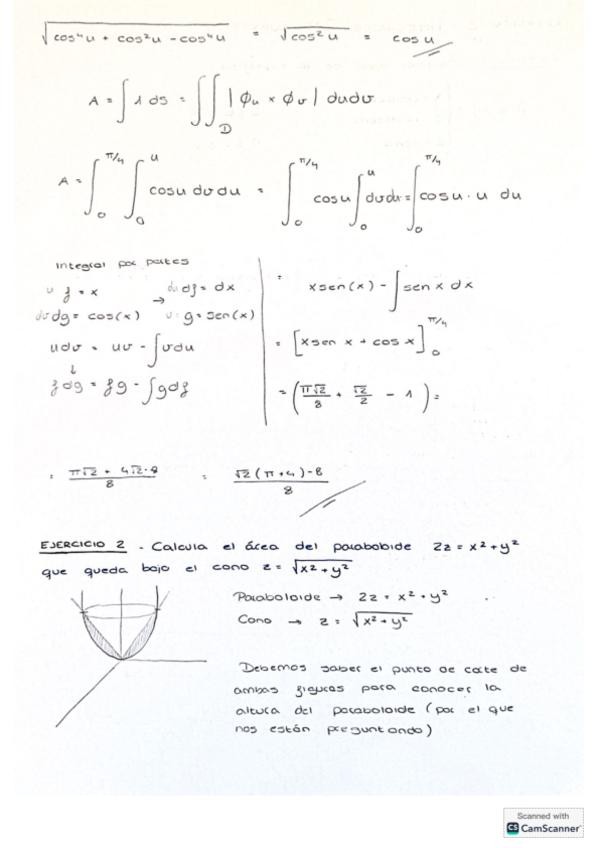 √(cos⁴u + cos²u - cos⁴u) = √(cos²u) = cos u
A = ∫ 1 ds = ∫∫_D |ϕu × ϕv| du dv
A = ∫₀^{π/4} ∫₀^u cos u dv du = ∫₀^{π/4} cos u ∫₀^u dv du = ∫₀^{π/4} cos u · u du
Integral por partes
u f = x → du df = dx
dv dg = cos(x) v = g = sen(x)
u dv = uv - ∫v du
↓
f dg = fg - ∫g df
= x sen(x) - ∫ sen x dx
= [x sen x + cos x]₀^{π/4}
= (π√2/8 + √2/2 - 1) =
= (π√2 + 4√2 - 8)/8 = (√2(π+4) - 8)/8
EJERCICIO 2 - Calcula el área del paraboloide 2z = x² + y²
que queda bajo el cono z = √(x² + y²)
Paraboloide → 2z = x² + y²
Cono → z = √(x² + y²)
Debemos saber el punto de corte de
ambas figuras para conocer la
altura del paraboloide (por el que
nos están preguntando)
Scanned with
CS CamScanner